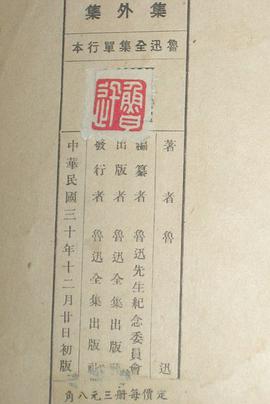 集外集
魯迅全集單行本
魯迅
著者魯迅
編纂者魯迅先生紀念委員會
出版者魯迅全集出版社
發行者魯迅全集出版社
中華民國三十年十二月廿日初版
定價每册三元八角